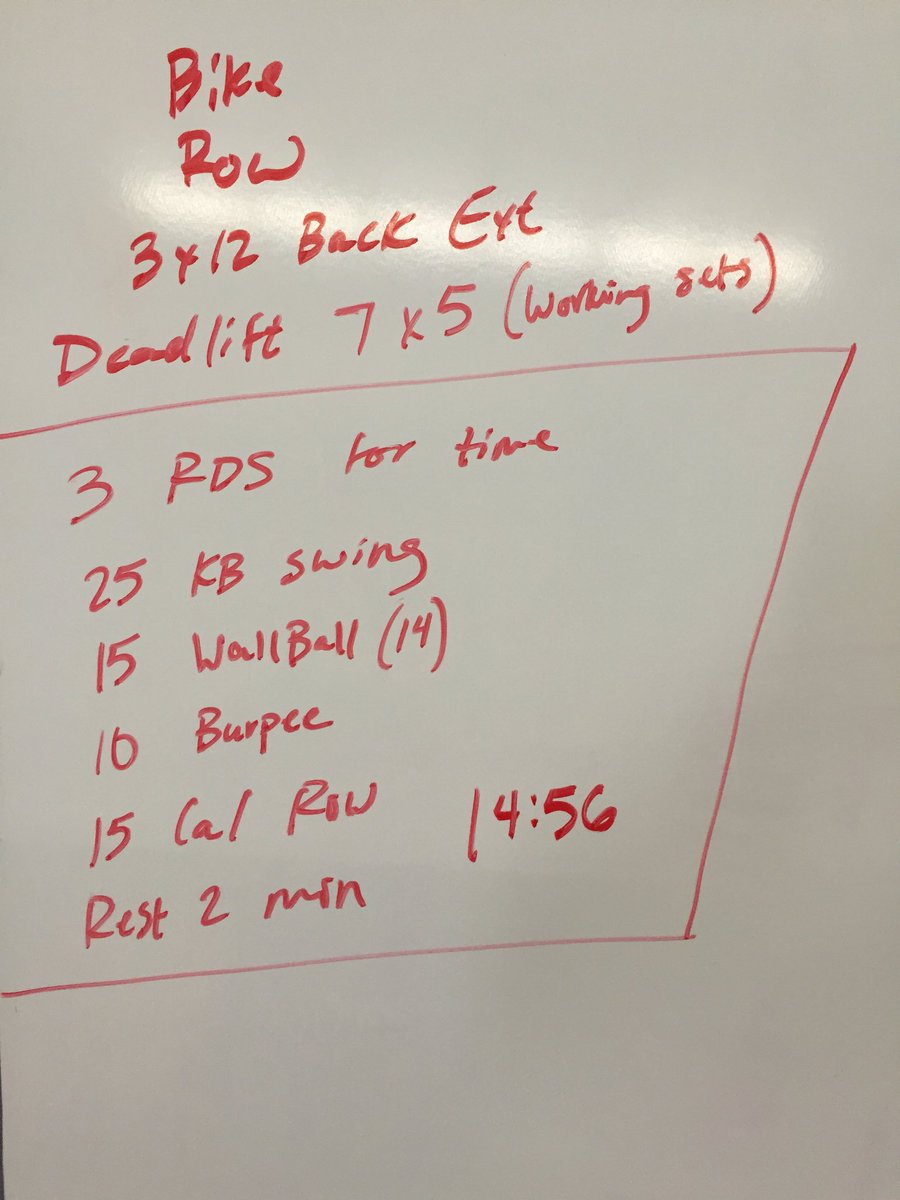 Bike
Row
3x12 Back Ext
Deadlift 7x5 (working sets)
3 RDS for time
25 KB swing
15 WallBall (14)
10 Burpee
15 Cal Row 14:56
Rest 2 min